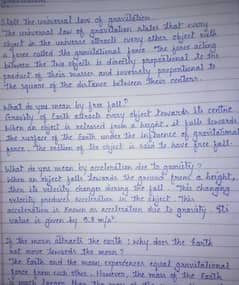 State the universal law of gravitation.
The universal law of gravitation states that every
object in the universe attracts every other object with
a force called the gravitational force. The force acting
between the two objects is directly proportional to the
product of their masses and inversely proportional to
the square of the distance between their centers.
What do you mean by free fall?
Gravity of Earth attracts every object towards its centre.
When an object is released from a height, it falls towards
the surface of the Earth under the influence of gravitational
force. The motion of the object is said to have free fall.
What do you mean by acceleration due to gravity?
When an object falls towards the ground from a height,
then its velocity changes during the fall. This changing
velocity produces acceleration in the object. This
acceleration is known as acceleration due to gravity. Its
value is given by 9.8 m/s²
If the moon attracts the earth, why does the Earth
not move towards the moon?
The Earth and the moon experiences equal gravitational
force from each other. However, the mass of the Earth
is much larger than the mass of the